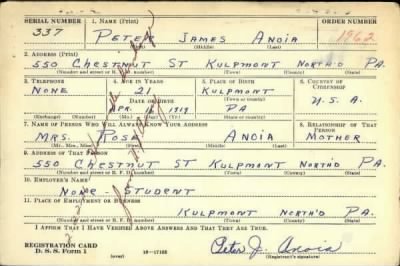 SERIAL NUMBER 1. NAME (Print) ORDER NUMBER
337 PETER JAMES ANOIA 1962
(First) (Middle) (Last)
2. ADDRESS (Print)
550 CHESTNUT ST KULPMONT NORTH'D PA.
(Number and street or R. F. D. number) (Town) (County) (State)
3. TELEPHONE 4. AGE IN YEARS 5. PLACE OF BIRTH 6. COUNTRY OF CITIZENSHIP
NONE 21 KULPMONT
DATE OF BIRTH (Town or county) U.S.A.
APR. 1919 PA
(Exchange) (Number) (Mo.) (Day) (Yr.) (State or country)
7. NAME OF PERSON WHO WILL ALWAYS KNOW YOUR ADDRESS 8. RELATIONSHIP OF THAT PERSON
MRS. ROSE ANOIA MOTHER
(Mr., Mrs., Miss) (First) (Middle) (Last)
9. ADDRESS OF THAT PERSON
550 CHESTNUT ST KULPMONT NORTH'D PA.
(Number and street or R. F. D. number) (Town) (County) (State)
10. EMPLOYER'S NAME
NONE - STUDENT
11. PLACE OF EMPLOYMENT OR BUSINESS
KULPMONT NORTH'D PA
(Number and street or R. F. D. number) (Town) (County) (State)
I AFFIRM THAT I HAVE VERIFIED ABOVE ANSWERS AND THAT THEY ARE TRUE.
REGISTRATION CARD
D. S. S. Form 1 (over) 16—17105 Peter J. Anoia
(Registrant's signature)